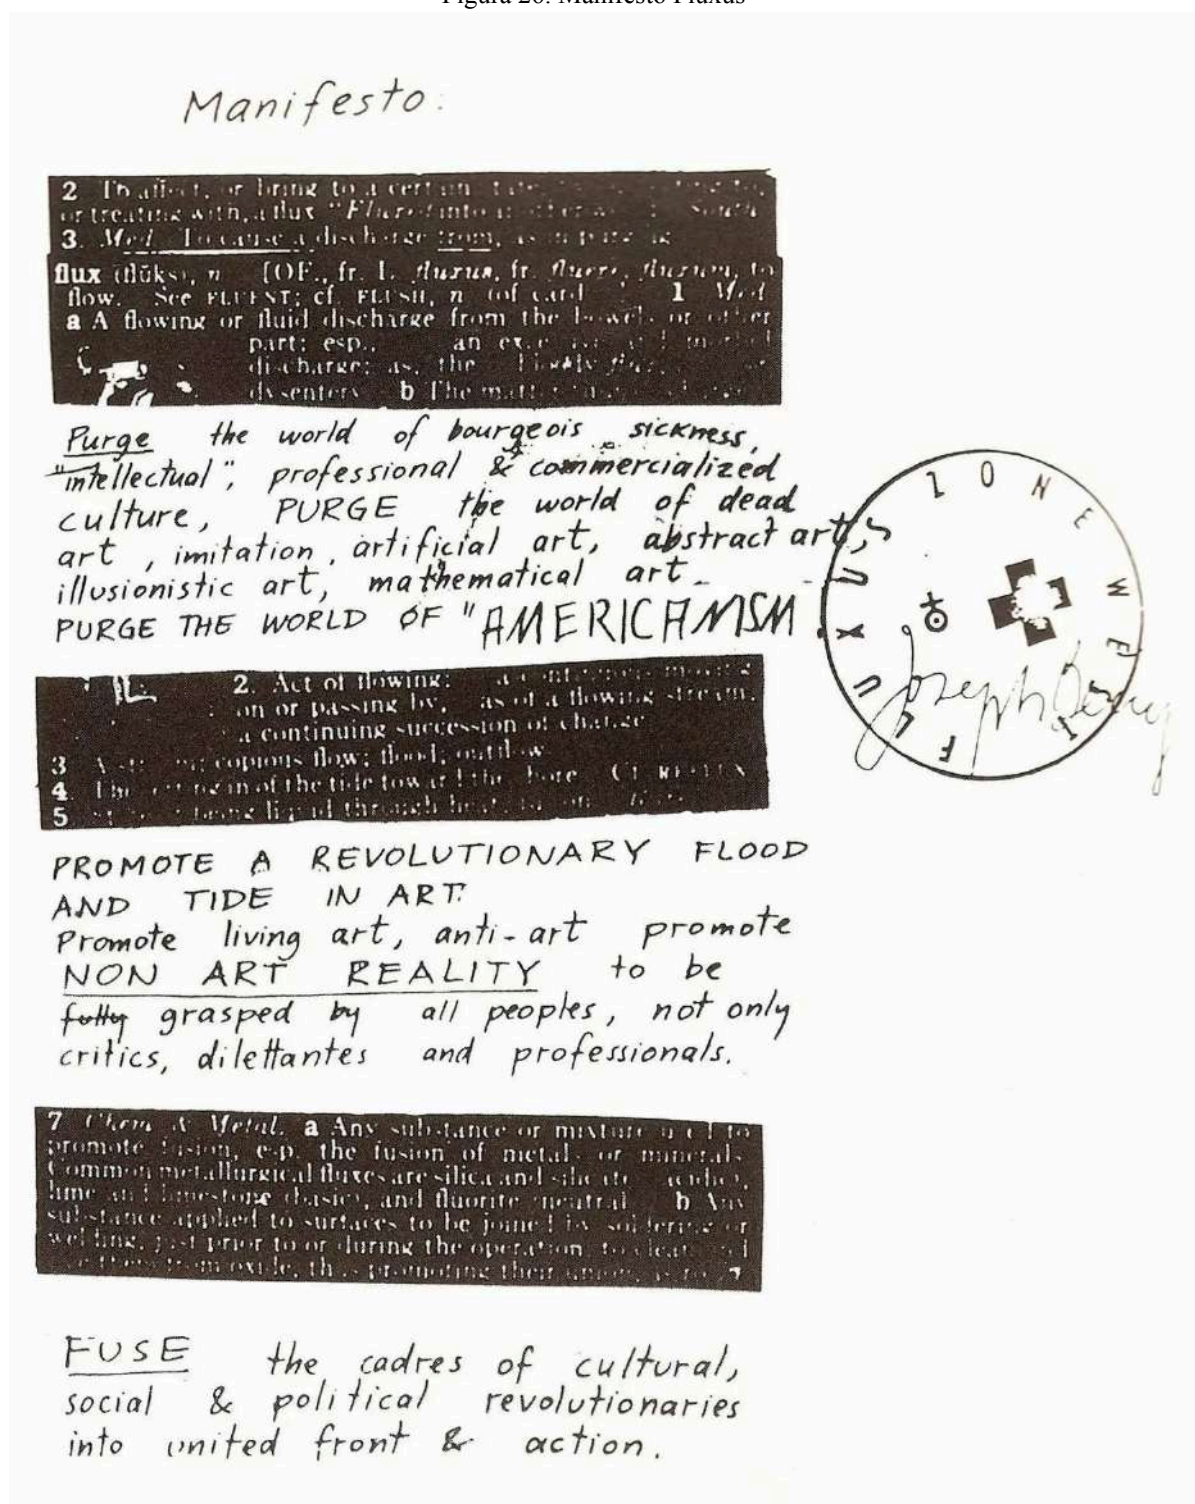 Figura 20: Manifesto Fluxus
Manifesto:
2 To affect, or bring to a certain
or treating with, a flux
3. Med. To cause a discharge from, as in purging
flux (flŭks), n. [OF., fr. L. fluxus, fr. fluere, fluxum, to
flow. See FLUENT; cf. FLUSH, n. (of cards 1 Med
a A flowing or fluid discharge from the bowels or other
part; esp., an excessive and morbid
discharge; as, the bloody flux
dysentery b The matter
Purge the world of bourgeois sickness,
"intellectual", professional & commercialized
culture, PURGE the world of dead
art, imitation, artificial art, abstract art,
illusionistic art, mathematical art
PURGE THE WORLD OF "AMERICANISM
FLUXUS ZONE WEST
Joseph Beuys
2. Act of flowing: a continuous moving
on or passing by, as of a flowing stream;
a continuing succession of change
3 copious flow; flood; outflow
4 The setting in of the tide toward the shore. Cf. REFLUX
5 liquid through heat
PROMOTE A REVOLUTIONARY FLOOD
AND TIDE IN ART.
Promote living art, anti-art promote
NON ART REALITY to be
fully grasped by all peoples, not only
critics, dilettantes and professionals.
7 Chem & Metal. a Any substance or mixture used to
promote fusion, esp. the fusion of metals or minerals
Common metallurgical fluxes are silica and silicates (acidic),
lime and limestone (basic), and fluorite (neutral b Any
substance applied to surfaces to be joined by soldering or
welding, just prior to or during the operation, to clean and
free them from oxide, thus promoting their union
FUSE the cadres of cultural,
social & political revolutionaries
into united front & action.